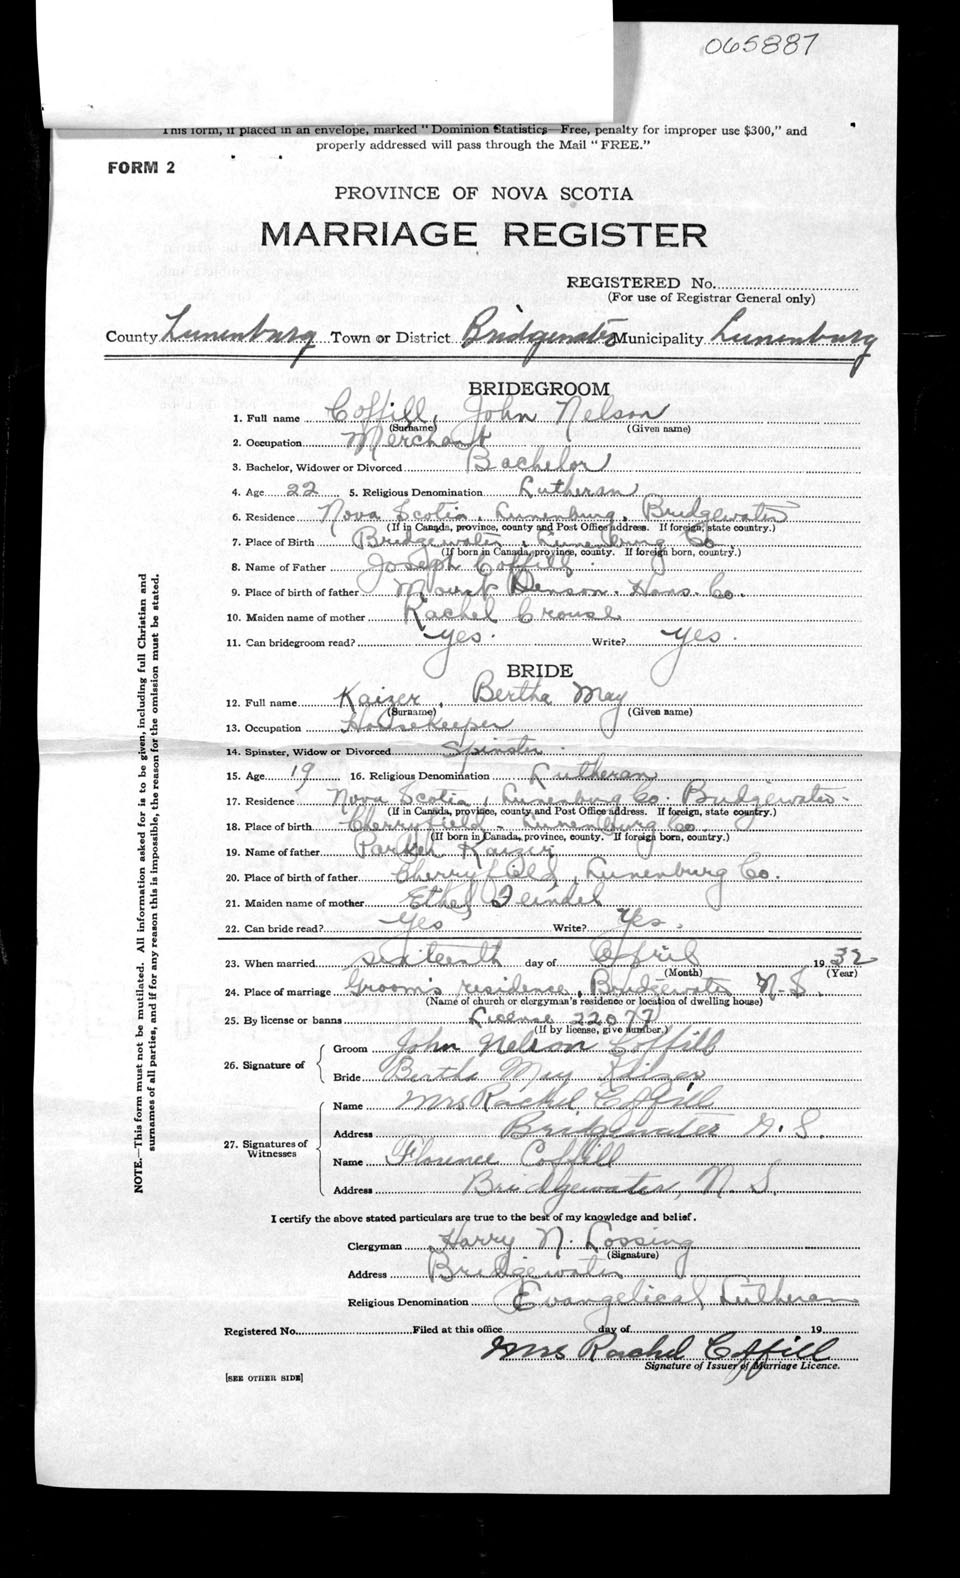 065887
This form, if placed in an envelope, marked "Dominion Statistics—Free, penalty for improper use $300," and
properly addressed will pass through the Mail "FREE."
FORM 2
PROVINCE OF NOVA SCOTIA
MARRIAGE REGISTER
REGISTERED No.
(For use of Registrar General only)
County Lunenburg Town or District Bridgewater Municipality Lunenburg
BRIDEGROOM
1. Full name Coffill, John Nelson
(Surname) (Given name)
2. Occupation Merchant
3. Bachelor, Widower or Divorced Bachelor
4. Age 22 5. Religious Denomination Lutheran
6. Residence Nova Scotia, Lunenburg, Bridgewater
(If in Canada, province, county and Post Office address. If foreign, state country.)
7. Place of Birth Bridgewater, Lunenburg Co.
(If born in Canada, province, county. If foreign born, country.)
8. Name of Father Joseph Coffill
9. Place of birth of father Mount Denson. Hans. Co.
10. Maiden name of mother Rachel Crouse
11. Can bridegroom read? Yes. Write? Yes.
BRIDE
12. Full name Kaizer, Bertha May
(Surname) (Given name)
13. Occupation Housekeeper
14. Spinster, Widow or Divorced Spinster
15. Age 19 16. Religious Denomination Lutheran
17. Residence Nova Scotia, Lunenburg Co. Bridgewater
(If in Canada, province, county and Post Office address. If foreign, state country.)
18. Place of birth Cherryfield, Lunenburg Co.
(If born in Canada, province, county. If foreign born, country.)
19. Name of father Parker Kaizer
20. Place of birth of father Cherryfield, Lunenburg Co.
21. Maiden name of mother Ethel Feindel
22. Can bride read? Yes Write? Yes.
23. When married sixteenth day of April 1932
(Month) (Year)
24. Place of marriage Groom's residence, Bridgewater N.S.
(Name of church or clergyman's residence or location of dwelling house)
25. By license or banns License 22077
(If by license, give number.)
26. Signature of
Groom John Nelson Coffill
Bride Bertha May Kaizer
27. Signatures of Witnesses
Name Mrs Rachel Coffill
Address Bridgewater N.S.
Name Florence Coffill
Address Bridgewater, N.S.
I certify the above stated particulars are true to the best of my knowledge and belief.
Clergyman Harry N. Lossing
(Signature)
Address Bridgewater
Religious Denomination Evangelical Lutheran
Registered No. Filed at this office day of 19
Mrs Rachel Coffill
Signature of Issuer of Marriage Licence.
[SEE OTHER SIDE]
NOTE.—This form must not be mutilated. All information asked for is to be given, including full Christian and
surnames of all parties, and if for any reason this is impossible, the reason for the omission must be stated.